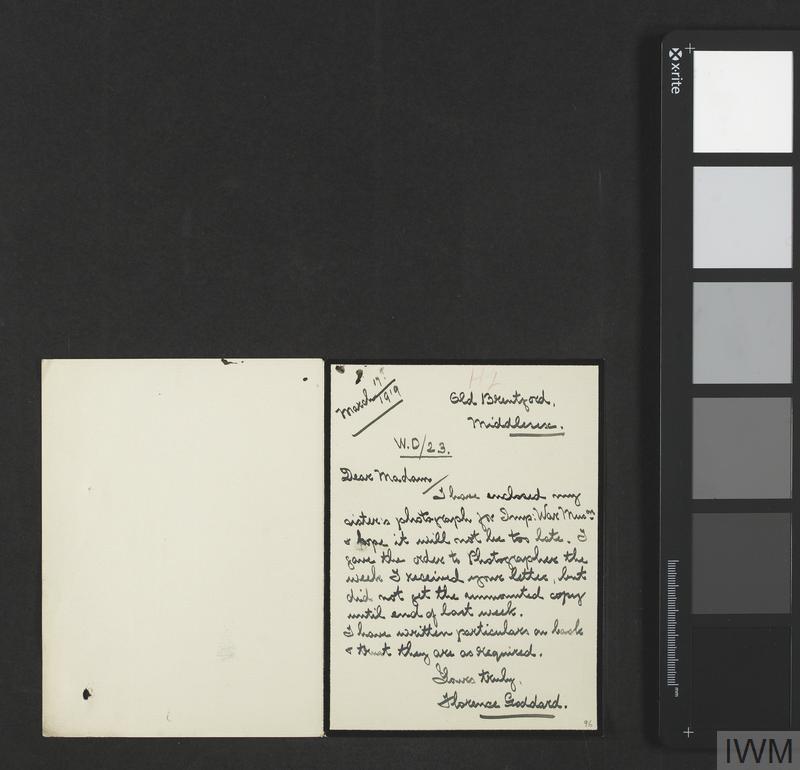 H L
March 17. 1919
Old Brentford,
Middlesex.
W.D/23.
Dear Madam/
I have enclosed my
sister's photograph for Imp: War Musm
& hope it will not be too late. I
gave the order to Photographer the
week I received your letter, but
did not get the unmounted copy
until end of last week.
I have written particulars on back
& trust they are as required.
Yours truly,
Florence Goddard.
96
x-rite
mm
IWM